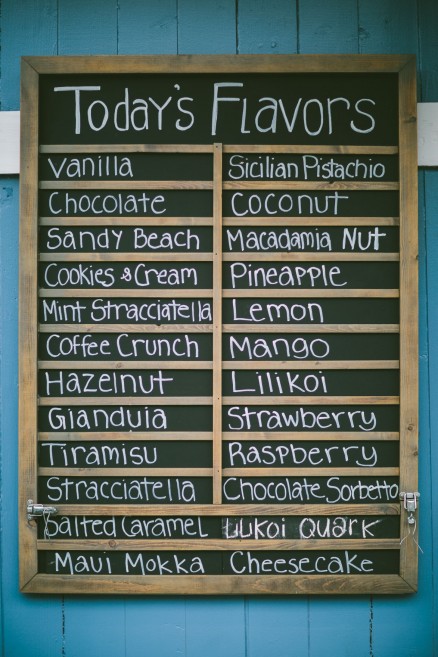 Today's Flavors
Vanilla
Chocolate
Sandy Beach
Cookies & Cream
Mint Stracciatella
Coffee Crunch
Hazelnut
Gianduia
Tiramisu
Stracciatella
Salted Caramel
Maui Mokka
Sicilian Pistachio
Coconut
Macadamia Nut
Pineapple
Lemon
Mango
Lilikoi
Strawberry
Raspberry
Chocolate Sorbetto
Quark
Cheesecake